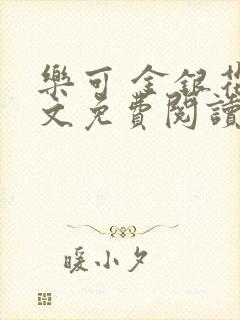 樂可 金銀花
文免費閱讀
暖小夕